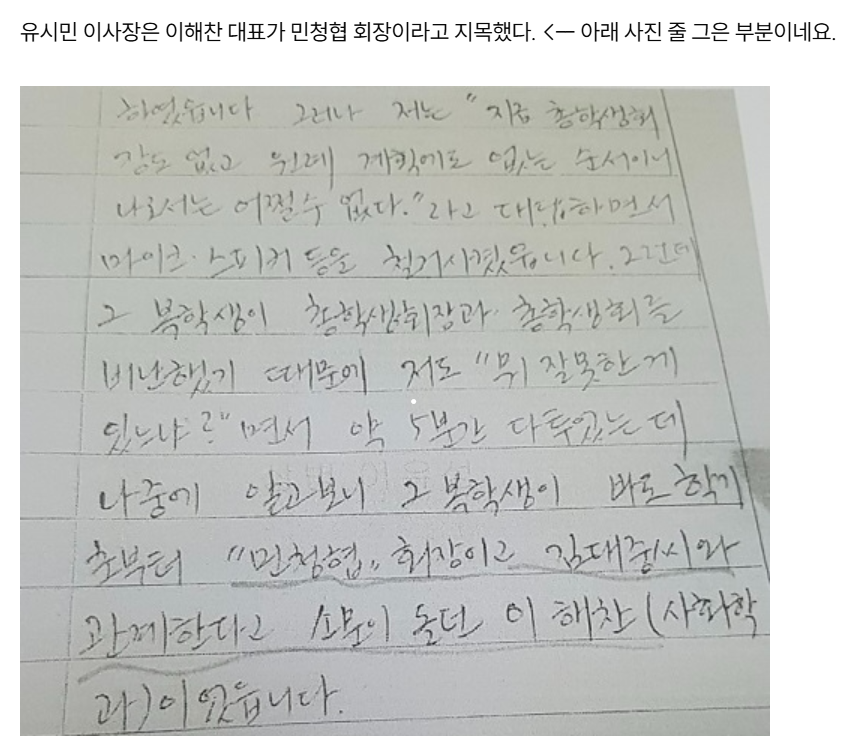 유시민 이사장은 이해찬 대표가 민청협 회장이라고 지목했다. <ㅡ 아래 사진 줄 그은 부분이네요.
하였읍니다 그러나 저는 "지금 총학생회
장도 없고 원래 계획에도 없는 순서이니
나로서는 어쩔수 없다."라고 대답하면서
마이크·스피커 등을 철거시켰읍니다. 그런데
그 복학생이 총학생회장과 총학생회를
비난했기 때문에 저도 "뭐 잘못한 게
있느냐?"면서 약 5분간 다투었는데
나중에 알고보니 그 복학생이 바로 학기
초부터 "민청협" 회장이고 김대중씨와
관계한다고 소문이 돌던 이해찬(사회학
과)이었읍니다.